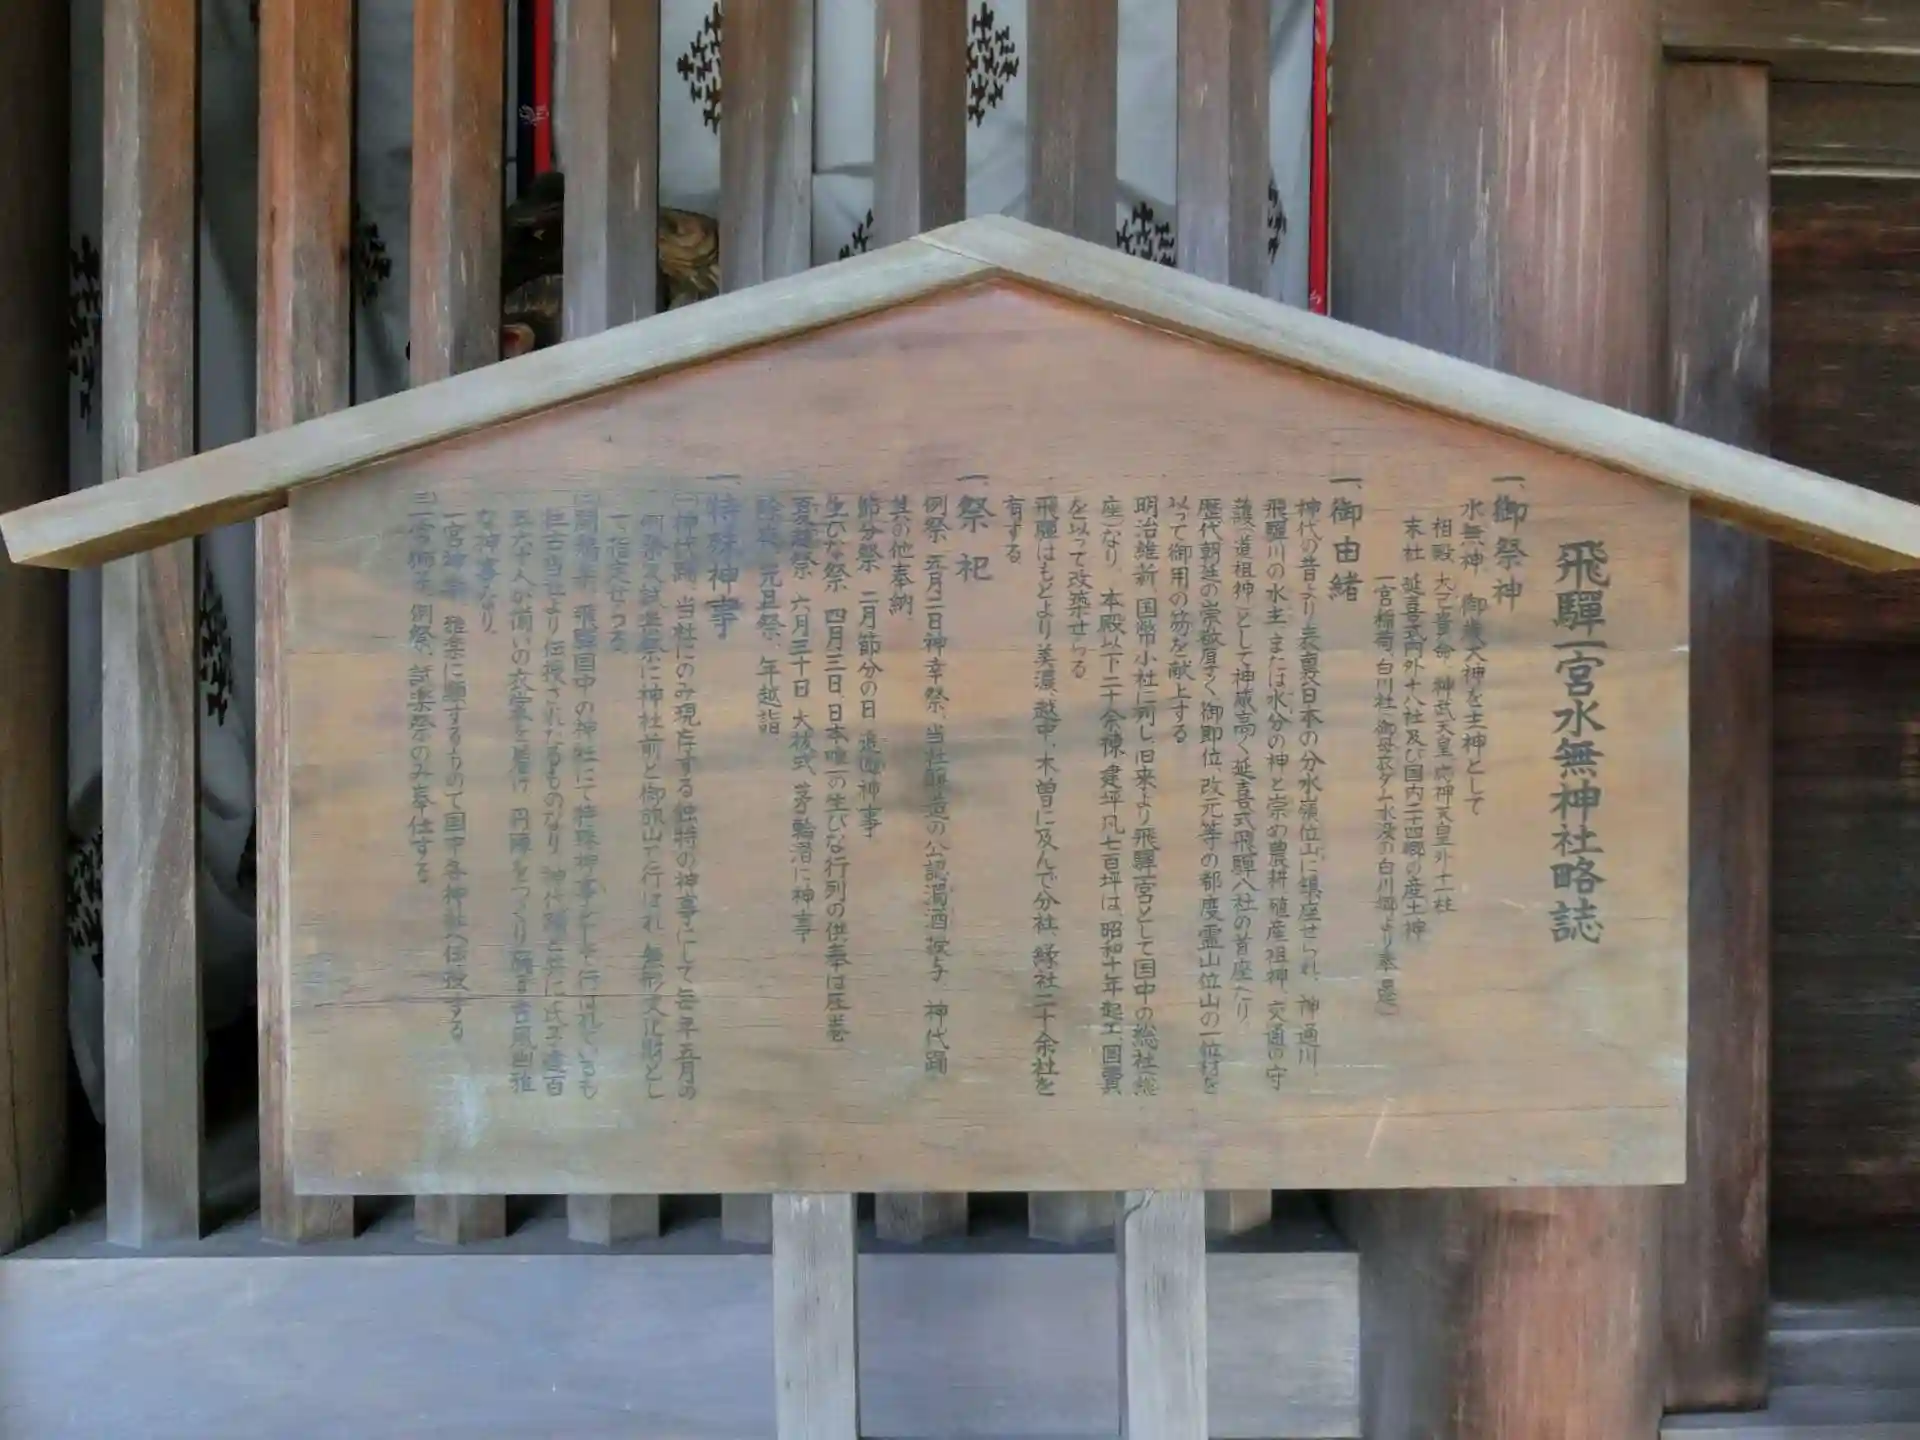 飛騨一宮水無神社略誌
一、御祭神
水無神 御歳大神を主神として
相殿 大己貴命 神武天皇 応神天皇外十一柱
末社 延喜式内外十八社及び国内二十四郷の産土神
一宮稲荷 白川社(御母衣ダム水没の白川郷より奉遷)
一、御由緒
神代の昔より表裏日本の分水嶺位山に鎮座せられ、神通川、
飛騨川の水主、または水分の神と崇め農耕、殖産祖神、交通の守
護(道祖神)として神威高く延喜式飛騨八社の首座たり
歴代朝廷の崇敬厚く御即位、改元等の都度霊山位山の一位材を
以って御用の笏を献上する
明治維新、国幣小社に列し旧来より飛騨一宮として国中の総社
座)なり、本殿以下二十余棟、建坪凡七百坪は、昭和十年起工、国費
を以って改築せらる
飛騨はもとより美濃、越中、木曽に及んで分社、縁社二十余社を
有する
一、祭祀
例祭 五月二日神幸祭、当社醸造の公認濁酒振予 神代踊
其の他奉納
節分祭 二月節分の日 追儺神事
生びな祭 四月三日、日本唯一の生びな行列の供奉は圧巻
夏越祭 六月三十日 大祓式、茅輪潜に神事
除夜祭 元旦祭、年越詣
一、特殊神事
㈠神代踊、当社にのみ現存する独特の神事にして毎年五月の
例祭及試楽祭に神社前と御旅山で行はれ 無形文化財とし
て指定せらる
㈡闘鶏楽、飛騨国中の神社にて特殊神事として行はれているも
往古当社より伝授されたるものなり、神代踊と共に氏子達百
五六十人が揃いの衣裳を着け 円陣をつくり
な神事なり
一宮神楽 雅楽に類するもので国中各神社へ伝授する
㈢一宮獅子 例祭、試楽祭のみ奉仕する